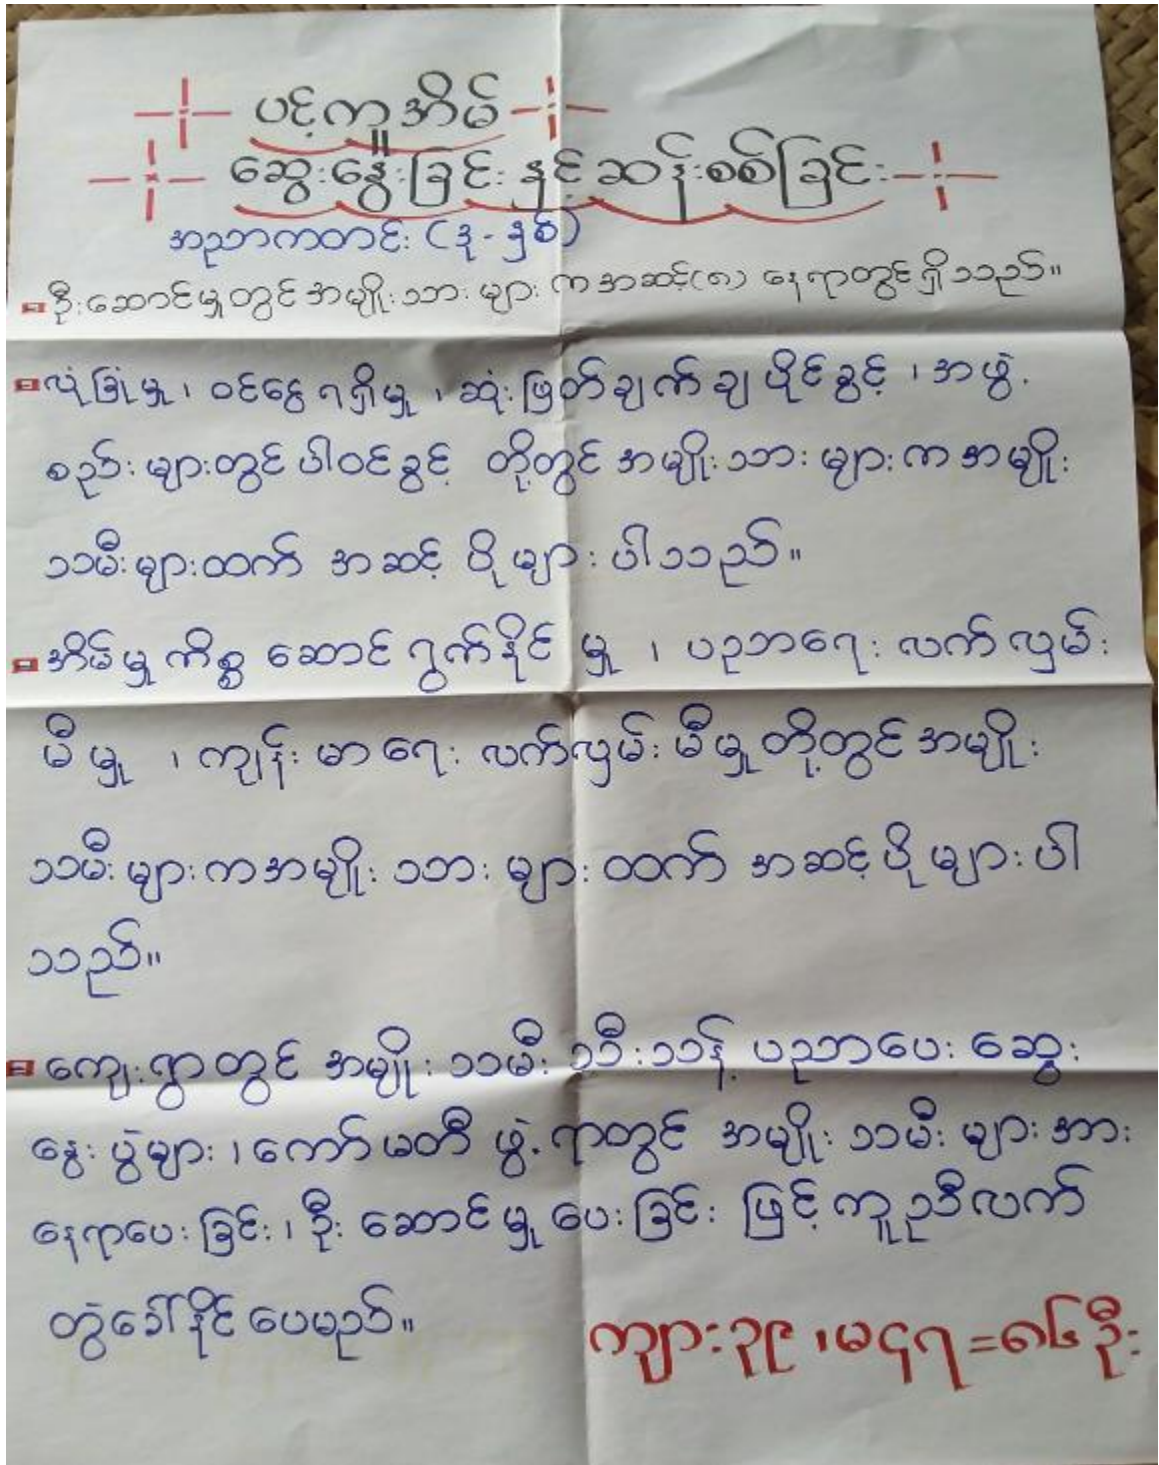 ပင့်ကူအိမ်
ဆွေးနွေးခြင်း နှင့် ဆန်းစစ်ခြင်း
အညာကတင်း (ဒု-နှစ်)
ဦးဆောင်မှုတွင် အမျိုးသားများက အဆင့်(၈) နေရာတွင် ရှိသည်။
လုံခြုံမှု၊ ဝင်ငွေရရှိမှု၊ ဆုံးဖြတ်ချက်ချပိုင်ခွင့်၊ အဖွဲ့
စည်းများတွင် ပါဝင်ခွင့် တို့တွင် အမျိုးသားများက အမျိုး
သမီးများထက် အဆင့် ပိုများပါသည်။
အိမ်မှုကိစ္စ ဆောင်ရွက်နိုင်မှု၊ ပညာရေး လက်လှမ်း
မီမှု၊ ကျန်းမာရေး လက်လှမ်းမီမှုတို့တွင် အမျိုး
သမီးများက အမျိုးသားများထက် အဆင့်ပိုများပါ
သည်။
ကျေးရွာတွင် အမျိုးသမီး သီးသန့် ပညာပေး ဆွေး
နွေးပွဲများ၊ ကော်မတီ ဖွဲ့ရာတွင် အမျိုးသမီးများအား
နေရာပေးခြင်း၊ ဦးဆောင်မှု ပေးခြင်း ဖြင့် ကူညီလက်
တွဲခေါ်နိုင်ပေမည်။
ကျား ၃၉၊ မ ၄၇ = ၈၆ ဦး